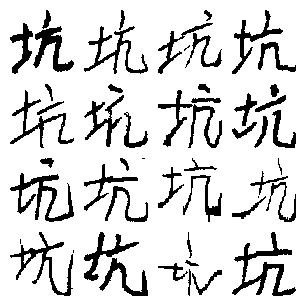 坑坑坑坑
坑坑坑坑
坑坑坑坑
坑坑坑坑